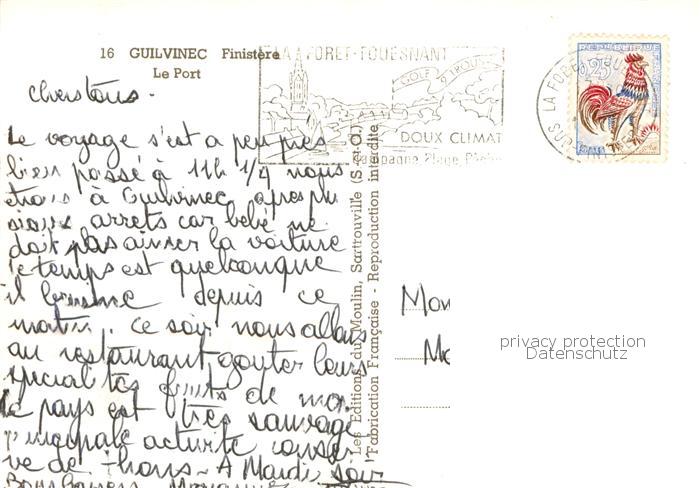 16 GUILVINEC Finistère
Le Port
LA FORET-FOUESNANT
GOLF 9 TROUS
DOUX CLIMAT
Campagne Plage Pêche
REPUBLIQUE
0,25
LA FORET FOUESNANT
Les Editions du Moulin, Sartrouville (S.-et-O.)
Fabrication Française - Reproduction interdite
chers tous.
Le voyage s'est a peu près
bien passé à 11h 1/4 nous
étions à Guilvinec après plu
sieurs arrets car bébé ne
doit pas aimer la voiture
le temps est quelconque
il bruine depuis ce
matin. Ce soir nous allons
au restaurant gouter leurs
spécialités fruits de mer
Le pays est très sauvage
principale activité conser
ve de thons - A Mardi soir
Bons baisers
Mon
Mo
privacy protection
Datenschutz